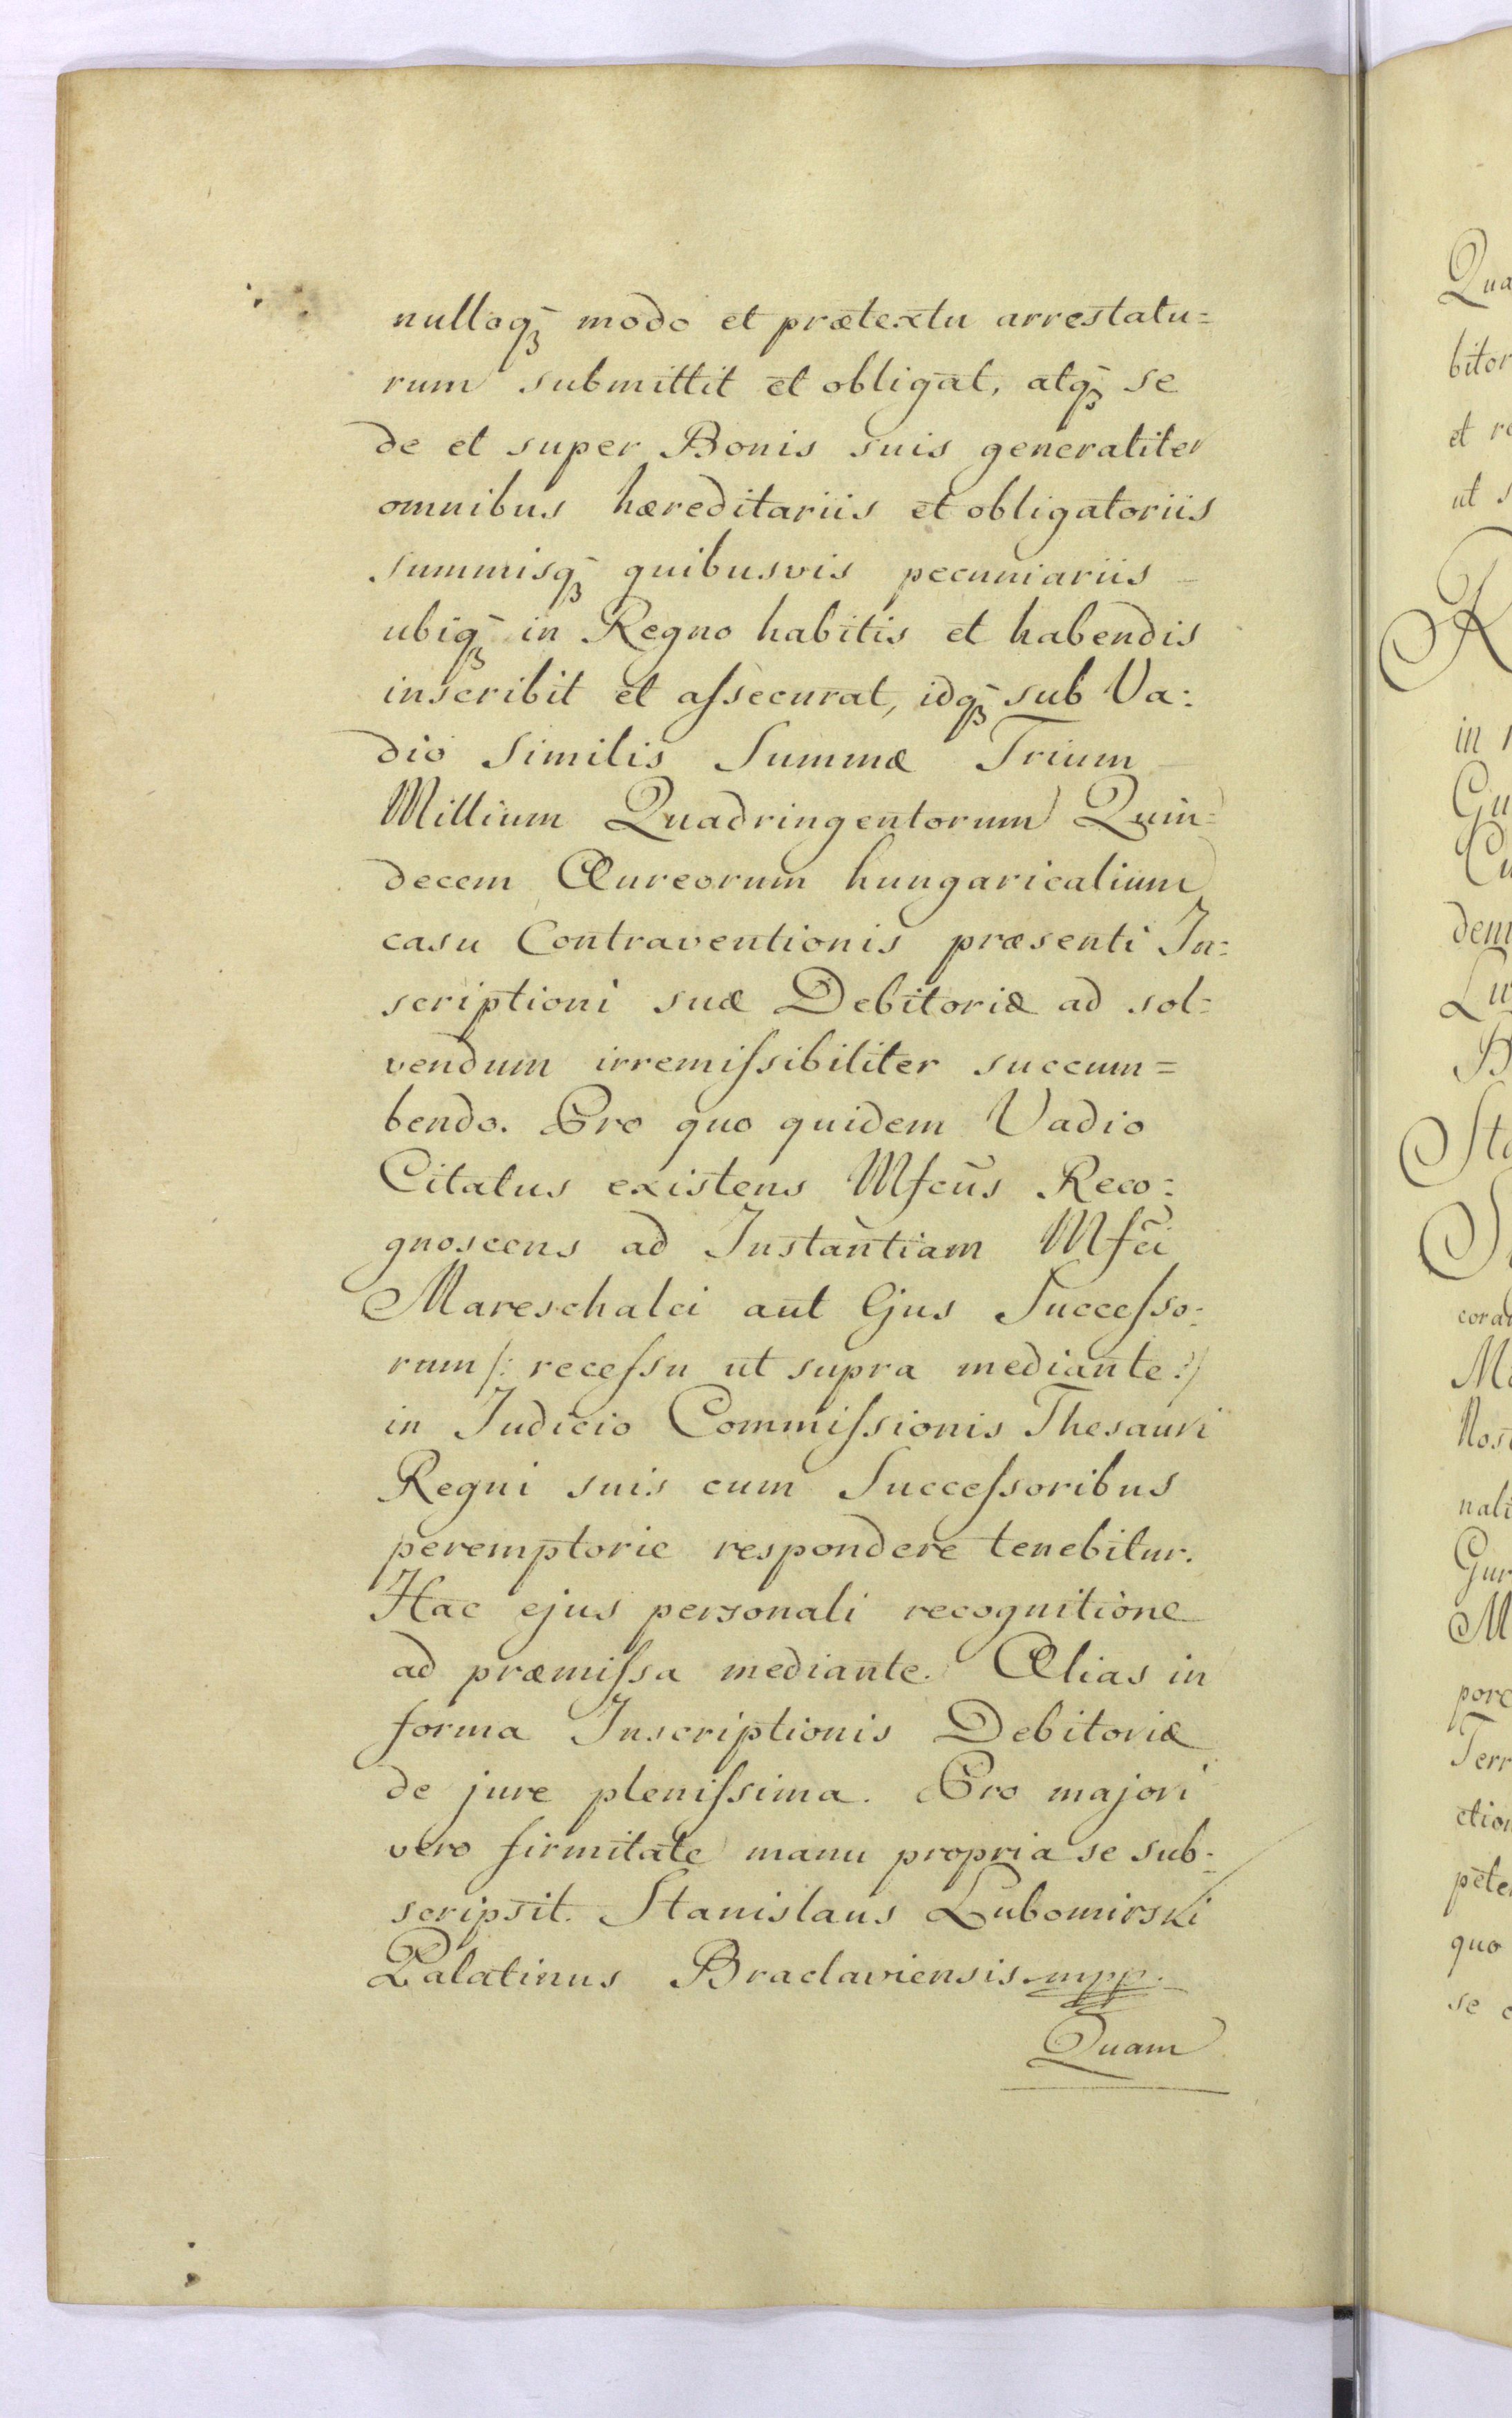 nulloq̄ꝫ modo et prætextu arrestatu=
rum submittit et obligat, atq̄ꝫ se
de et super Bonis suis generaliter
omnibus hæreditariis et obligatoriis
summisq̄ꝫ quibusvis pecuniariis
ubiq̄ꝫ in Regno habitis et habendis
inscribit et aſsecurat, idq̄ꝫ sub Va:
dio Similis Summæ Trium
Millium Quadringentorum Quin=
decem Aureorum hungaricalium
casu Contraventionis præsenti In:
scriptioni suæ Debitoriæ ad sol=
vendum irremiſsibiliter succum=
bendo. Pro quo quidem Vadio
Citatus existens Mfcus̄ Reco:
gnoscens ad Instantiam Mfc̄i
Mareschalci aut Ejus Succeſso:
rum /: receſsu ut supra mediante :/
in Judicio Commiſsionis Thesauri
Regni suis cum Succeſsoribus
peremptorie respondere tenebitur.
Hac ejus personali recognitione
ad præmiſsa mediante. Alias in
forma Inscriptionis Debitoriæ
de jure pleniſsima. Pro majori
vero firmitate manu propria se sub:
scripsit. Stanislaus Lubomirski
Palatinus Braclaviensis mpp.
Quam
Qua
bitor
et re
ut s
R
in
Gu
Cu
dem
Lu
B
Sta
S
cora
Ma
Nos
nali
Gur
M
pore
Terr
ction
pete
quo
se